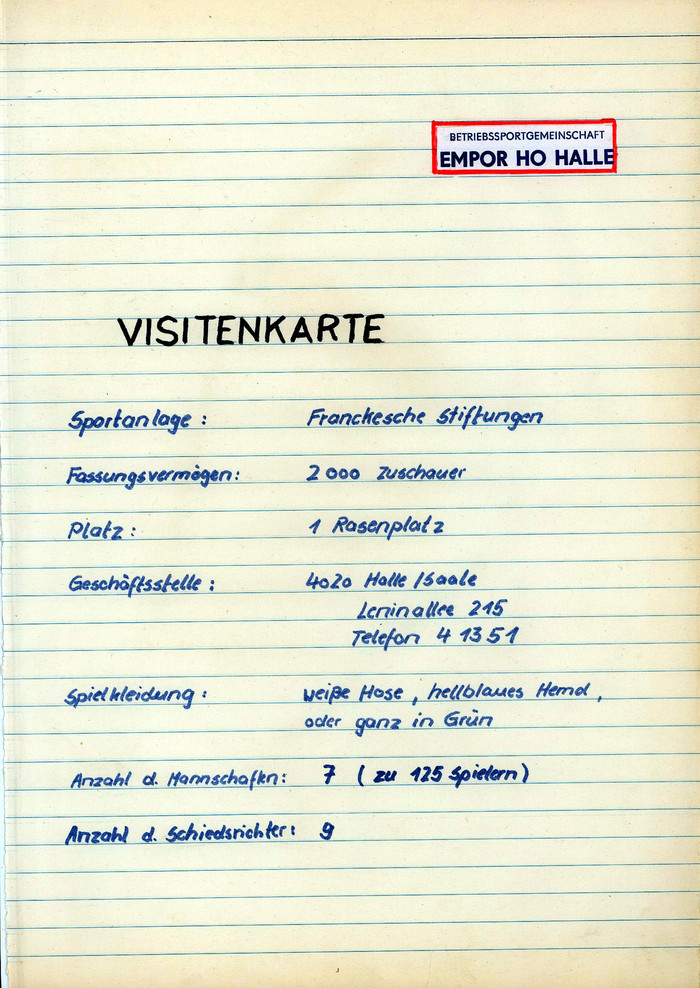 BETRIEBSSPORTGEMEINSCHAFT
EMPOR HO HALLE
VISITENKARTE
Sportanlage : Franckesche Stiftungen
Fassungsvermögen: 2000 Zuschauer
Platz : 1 Rasenplatz
Geschäftsstelle : 4020 Halle/Saale
Leninallee 215
Telefon 4 13 51
Spielkleidung : weiße Hose, hellblaues Hemd,
oder ganz in Grün
Anzahl d. Mannschaftn: 7 (zu 125 Spielern)
Anzahl d. Schiedsrichter: 9